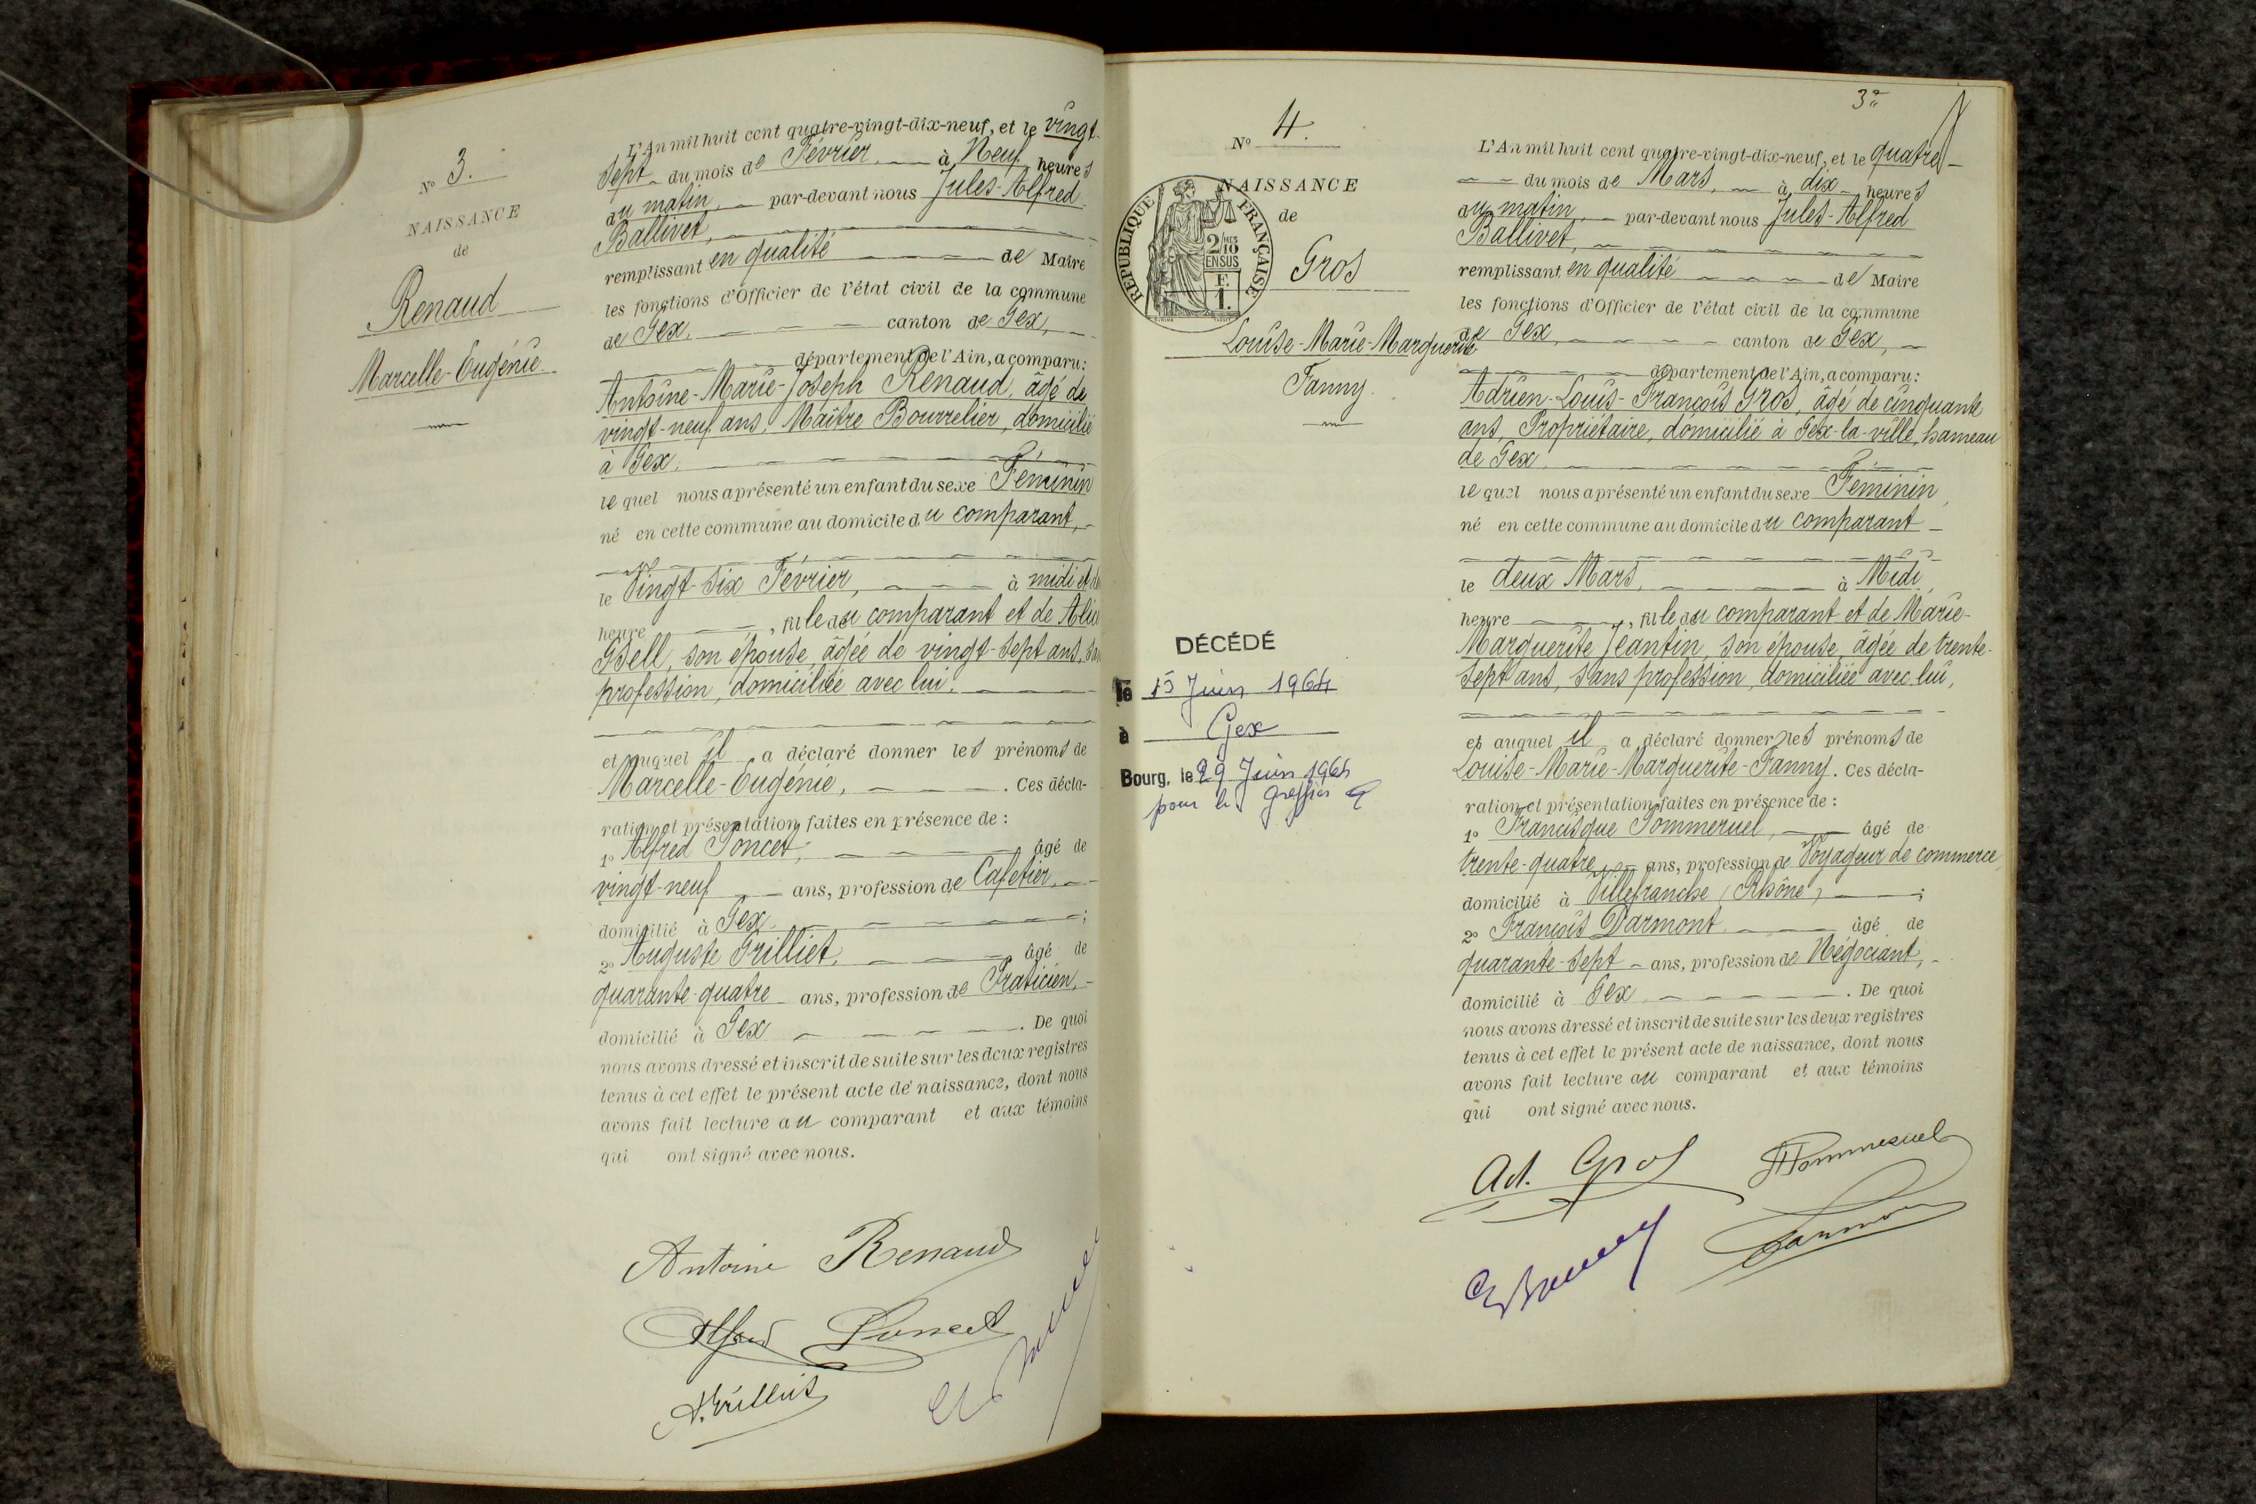 N° 3.
NAISSANCE
de
Renaud
Marcelle-Eugénie
L'An mil huit cent quatre-vingt-dix-neuf, et le vingt-
sept du mois de Février à Neuf heures
au matin, par-devant nous Jules-Alfred
Ballivet,
remplissant en qualité de Maire
les fonctions d'Officier de l'état civil de la commune
de Gex, canton de Gex,
département de l'Ain, a comparu:
Antoine-Marie-Joseph Renaud, âgé de
vingt-neuf ans, Maître Bourrelier, domicilié
à Gex.
le quel nous a présenté un enfant du sexe Féminin
né en cette commune au domicile du comparant,
le Vingt-six Février, à midi et
heure, fille du comparant et de
Gsell, son épouse, âgée de vingt-sept ans,
profession, domiciliée avec lui.
et auquel il a déclaré donner les prénoms de
Marcelle-Eugénie, . Ces décla-
ration et présentation faites en présence de :
1° Alfred Poncet, âgé de
vingt-neuf ans, profession de Cafetier,
domicilié à Gex ;
2° Auguste Grilliet, âgé de
quarante-quatre ans, profession de Praticien,
domicilié à Gex . De quoi
nous avons dressé et inscrit de suite sur les deux registres
tenus à cet effet le présent acte de naissance, dont nous
avons fait lecture au comparant et aux témoins
qui ont signé avec nous.
Antoine Renaud
Alfred Poncet
A. Grilliet
3
N° 4.
NAISSANCE
de
RÉPUBLIQUE FRANÇAISE
2/10 EN SUS
F. 1.
Gros
Louise-Marie-Marguerite
Fanny.
DÉCÉDÉ
le 15 Juin 1964
à Gex
Bourg, le 29 Juin 1964
pour le greffier
L'An mil huit cent quatre-vingt-dix-neuf, et le quatre
du mois de Mars, à dix heures
au matin, par-devant nous Jules-Alfred
Ballivet,
remplissant en qualité de Maire
les fonctions d'Officier de l'état civil de la commune
de Gex, canton de Gex,
département de l'Ain, a comparu:
Adrien-Louis-François Gros, âgé de cinquante
ans, Propriétaire, domicilié à Gex-la-ville, hameau
de Gex.
le quel nous a présenté un enfant du sexe Féminin,
né en cette commune au domicile du comparant
le deux Mars, à Midi,
heure, fille du comparant et de Marie-
Marguerite Jeantin, son épouse, âgée de trente-
sept ans, sans profession, domiciliée avec lui,
et auquel il a déclaré donner les prénoms de
Louise-Marie-Marguerite-Fanny. Ces décla-
ration et présentation faites en présence de :
1° Francisque Pommeruel, âgé de
trente-quatre ans, profession de Voyageur de commerce
domicilié à Villefranche (Rhône) ;
2° François Darmont âgé de
quarante-sept ans, profession de Négociant,
domicilié à Gex . De quoi
nous avons dressé et inscrit de suite sur les deux registres
tenus à cet effet le présent acte de naissance, dont nous
avons fait lecture au comparant et aux témoins
qui ont signé avec nous.
Ad. Gros
Pommeruel